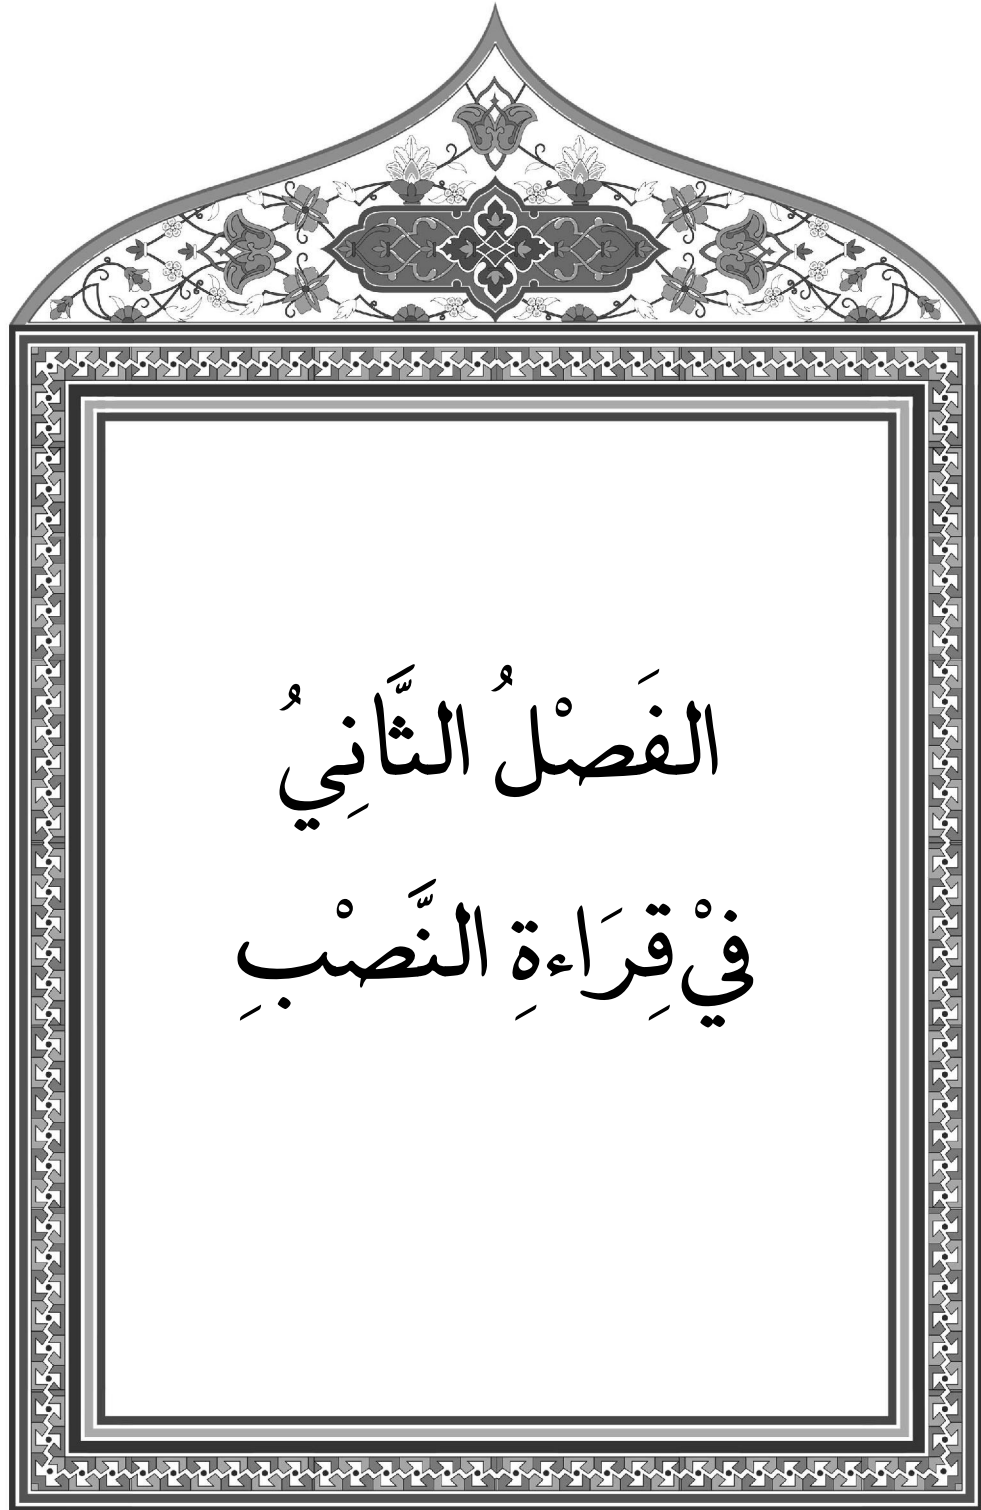 الفَصْلُ الثَّانِيُ
فيْ قِرَاءةِ النَّصْبِ